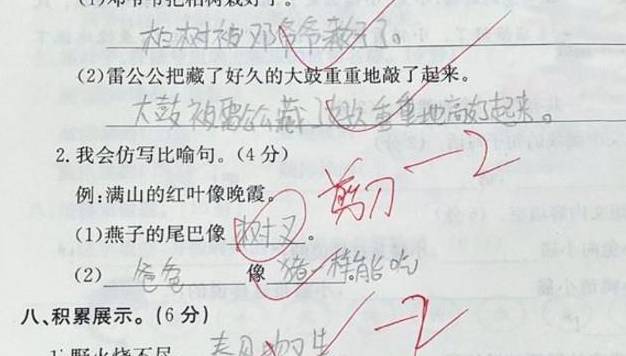 (1)邓爷爷把柏树栽好了。
柏树被邓爷爷栽好了。
(2)雷公公把藏了好久的大鼓重重地敲了起来。
大鼓被雷公公藏了好久重重地敲起来。
2.我会仿写比喻句。(4分)
例:满山的红叶像晚霞。
剪刀 -2
(1)燕子的尾巴像树叉。
(2)爸爸像猪一样能吃
八、积累展示。(6分)
-2
1.野火烧不尽